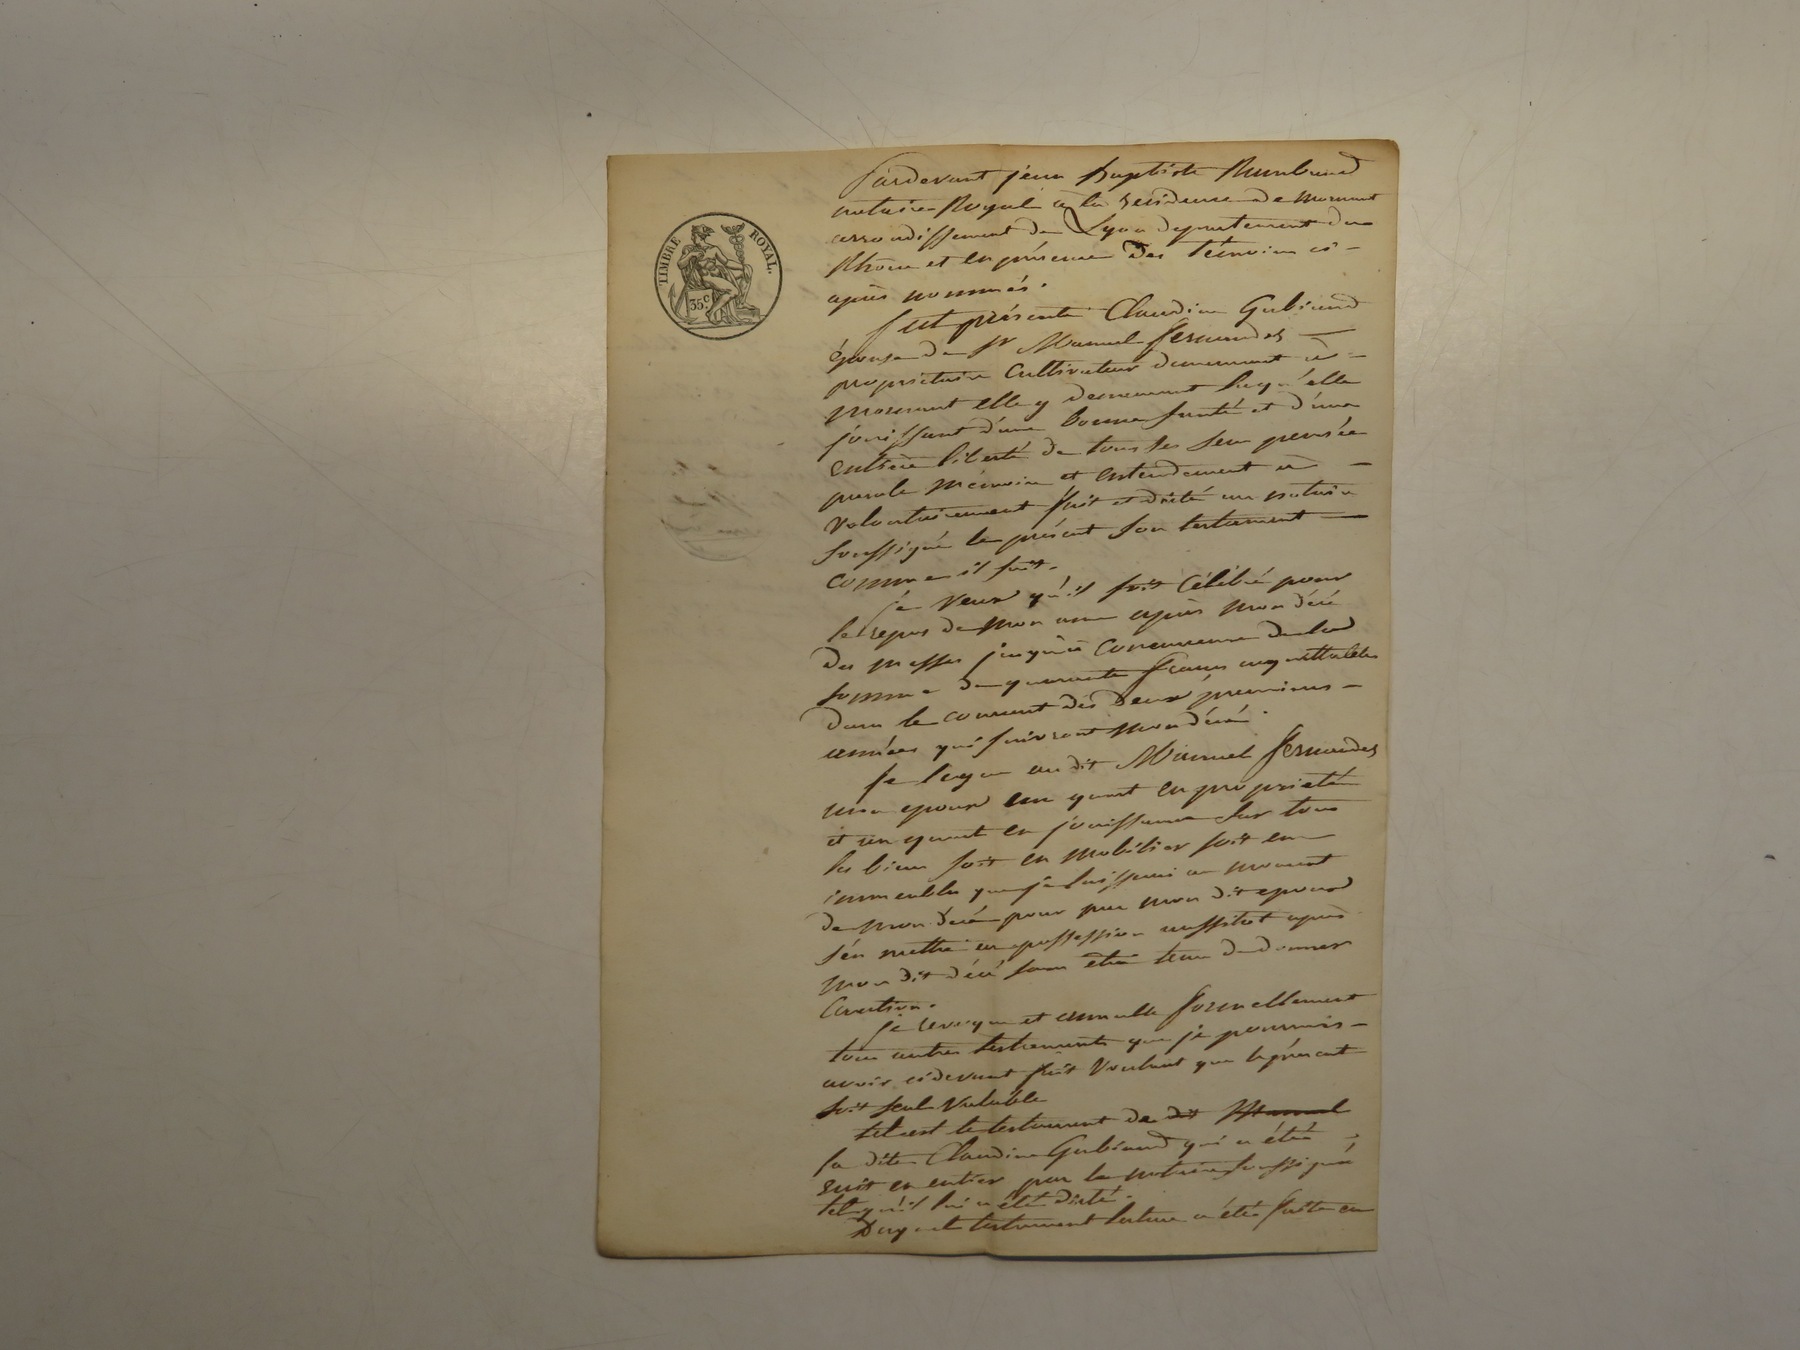 TIMBRE ROYAL.
35c
Pardevant jean Baptiste
notaire Royal à la residence de mornant
arrondissement de Lyon departement du
Rhône et en présence des témoins ci-
après nommés.
s'est présenté Claudine Gubiand
épouse de Sr Manuel fernandes
propriétaire cultivateur demeurant à
mornant elle y demeurant laqu'elle
jouissant d'une bonne santé et d'une
entière liberté de tous ses sens pensée
parole mémoire et entendement à
volontairement fait et dicté au notaire
soussigné le présent son testament
comme il suit.
je veux qu'il soit célébré pour
le repos de mon ame après mon décé
des messes jusqu'à concurrence de la
somme de quarante francs acquittables
dans le courant des deux premieres
années qui suivront mon décé.
je legue au dit Manuel fernandes
mon epoux un quart en proprieté
et un quart en jouissance sur tous
les biens soit en mobilier soit en
immeubles que je laisserai au moment
de mon décé pour par mon dit epoux
s'en mettre en possession aussitot après
mon dit décé sans être tenu de donner
Caution.
je revoque et annulle formellement
tous autres testaments que je pourrais
avoir cidevant fait voulant que le présent
soit seul valable
tel est le testament de dit Manuel
la dite Claudine Gubiand qui a été
ecrit en entier par le notaire soussigné
tel qu'il lui a été dicté.
Duquel testament lecture a été faite en